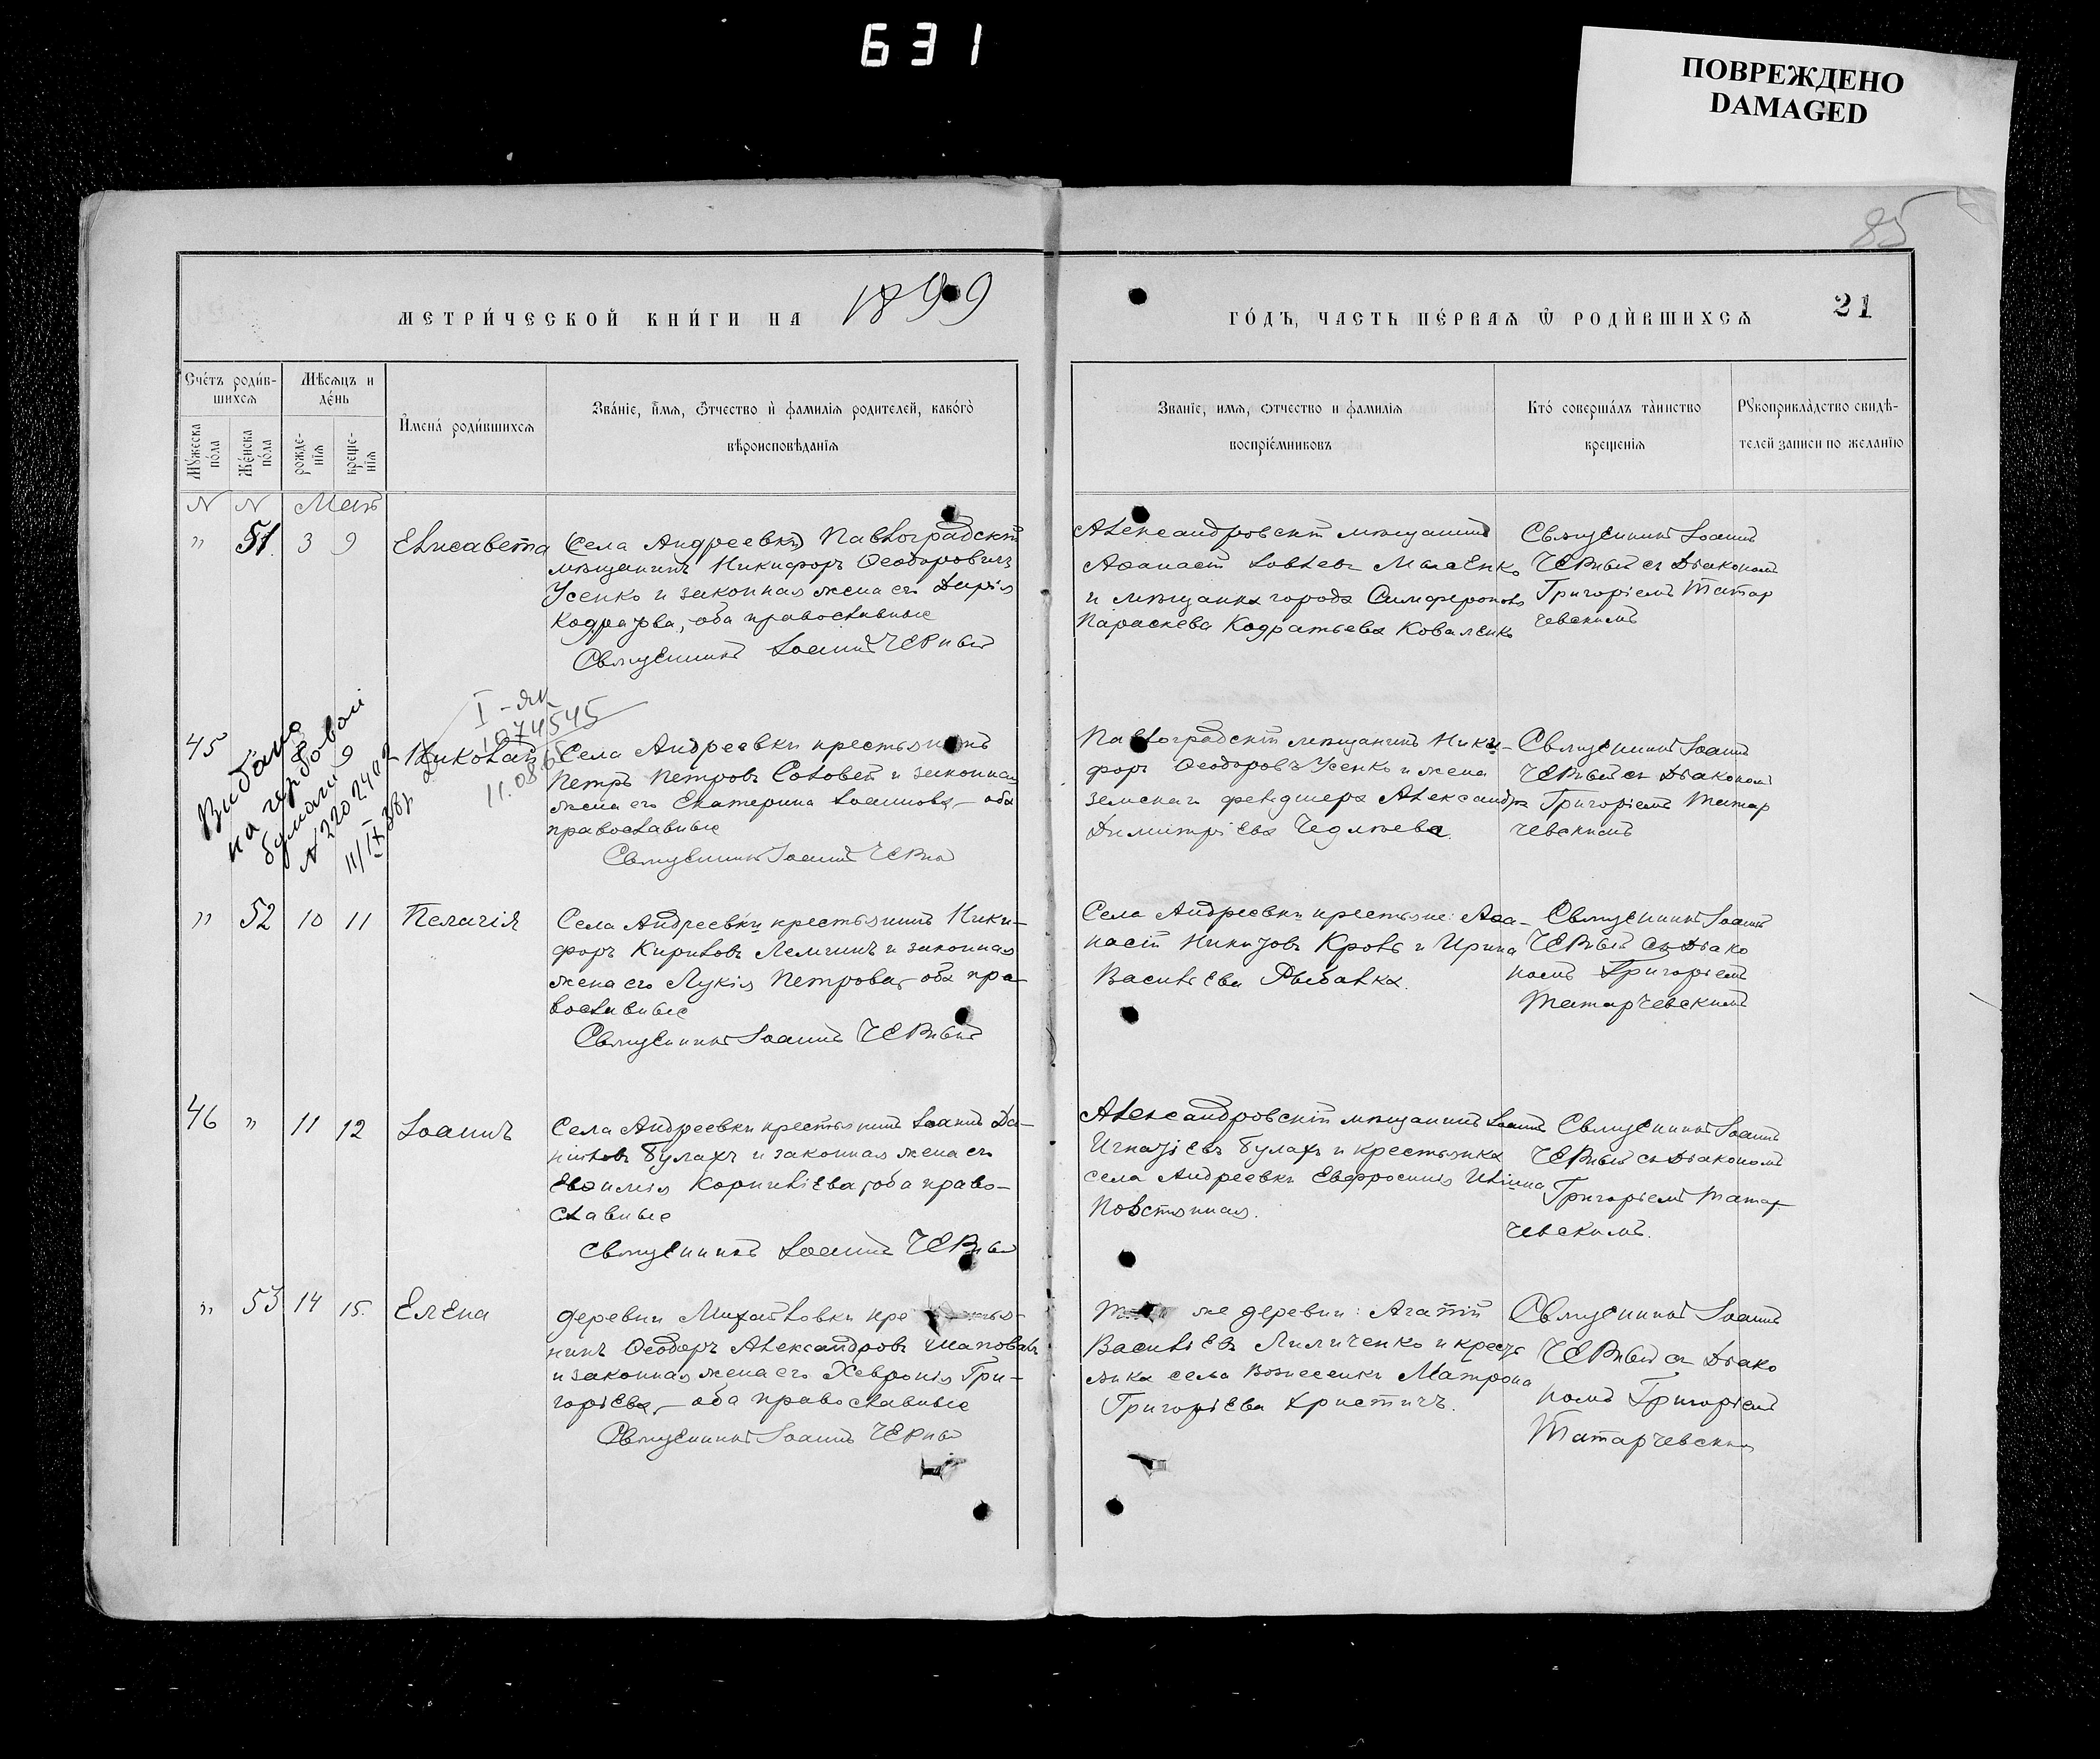 631
ПОВРЕЖДЕНО
DAMAGED
85
МЕТРИ́ЧЕСКОЙ КНИ́ГИ НА 1899
ГО́ДЪ, ЧАСТЬ ПЕ́РВАѦ Ѿ РОДИ́ВШИХСѦ
21
Сче́тъ роди́в-
шихсѧ
Мѣсѧцъ и
де́нь
Мꙋ́жеска
по́ла
Же́нска
по́ла
рожде-
нїѧ
креще-
нїѧ
И҆мена̀ роди́вшихсѧ
Зва́нїе, и҆́мѧ, ѻ҆́тчество и҆ фамилїѧ родителей, како́гѡ
вѣроисповѣданїѧ
Званїе, имѧ, ѻтчество и фамилїѧ
воспрїе́мниковъ
Кто̀ соверша́лъ та̀инство
крещенїѧ
Рꙋкоприкла̀дство свидѣ-
телей записи по желанїю
N N Май
" 51. 3 9 Елисавета
Села Андреевки Павлоградскій
мѣщанинъ Никифоръ Ѳеодоровичъ
Усенко и законная жена его Дарія
Кодратова, оба православные
Священникъ Іоаннъ Черный
Александровскій мѣщанинъ
Аѳанасій Іовлевъ
и мѣщанка города Симферополь
Параскева Кодратьева Коваленко
Священникъ Іоаннъ
Черный съ Діакономъ
Григоріемъ Татар
чевскимъ
45 8 9 Николай
Видано
на гербовой
бумаги
№ 2202402
I-ЯИ
1074545
11.08.
Села Андреевки крестьянинъ
Петръ Петровъ Соловей и законная
жена его Екатерина Іоаннова, – оба
православные
Священникъ Іоаннъ Черный
Павлоградскій мѣщанинъ Ники-
форъ Ѳеодоровъ Усенко и жена
земскаго фельдшера Александра
Димитріева
Священникъ Іоаннъ
Черный съ Діакономъ
Григоріемъ Татар
чевскимъ
" 52 10 11 Пелагія
Села Андреевки крестьянинъ Ники-
форъ Кириловъ Лемишъ и законная
жена его Лукія Петрова, оба пра-
вославные
Священникъ Іоаннъ Черный
Села Андреевки крестьяне: Аѳа-
насій и Ирина
Васильева Рыбалка.
Священникъ Іоаннъ
Черный съ Діако
номъ Григоріемъ
Татарчевскимъ
46 " 11 12 Іоаннъ
Села Андреевки крестьянинъ Іоаннъ Да-
ниловъ Булахъ и законная жена его
Евѳимія Корниліева, оба право-
славные
Священникъ Іоаннъ Черный
Александровскій мѣщанинъ Іоаннъ
Игнатіевъ Булахъ и крестьянка
села Андреевки Евфросинія Ильина
Повстяная.
Священникъ Іоаннъ
Черный съ Діакономъ
Григоріемъ Татар
чевскимъ.
" 53 14 15. Елена
деревни Михайловки крестья-
нинъ Ѳеодоръ Александровъ Шаповалъ
и законная жена его Хевронія Гри-
горіева, – оба православные
Священникъ Іоаннъ Черный
той же деревни: Агапій
Васильевъ Лиличенко и кресть
янка села Вознесенки Матрона
Григоріева Христичъ.
Священникъ Іоаннъ
Черный съ Діако
номъ Григоріемъ
Татарчевским